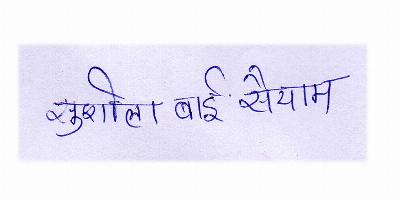 सुशीला बाई सैयाम